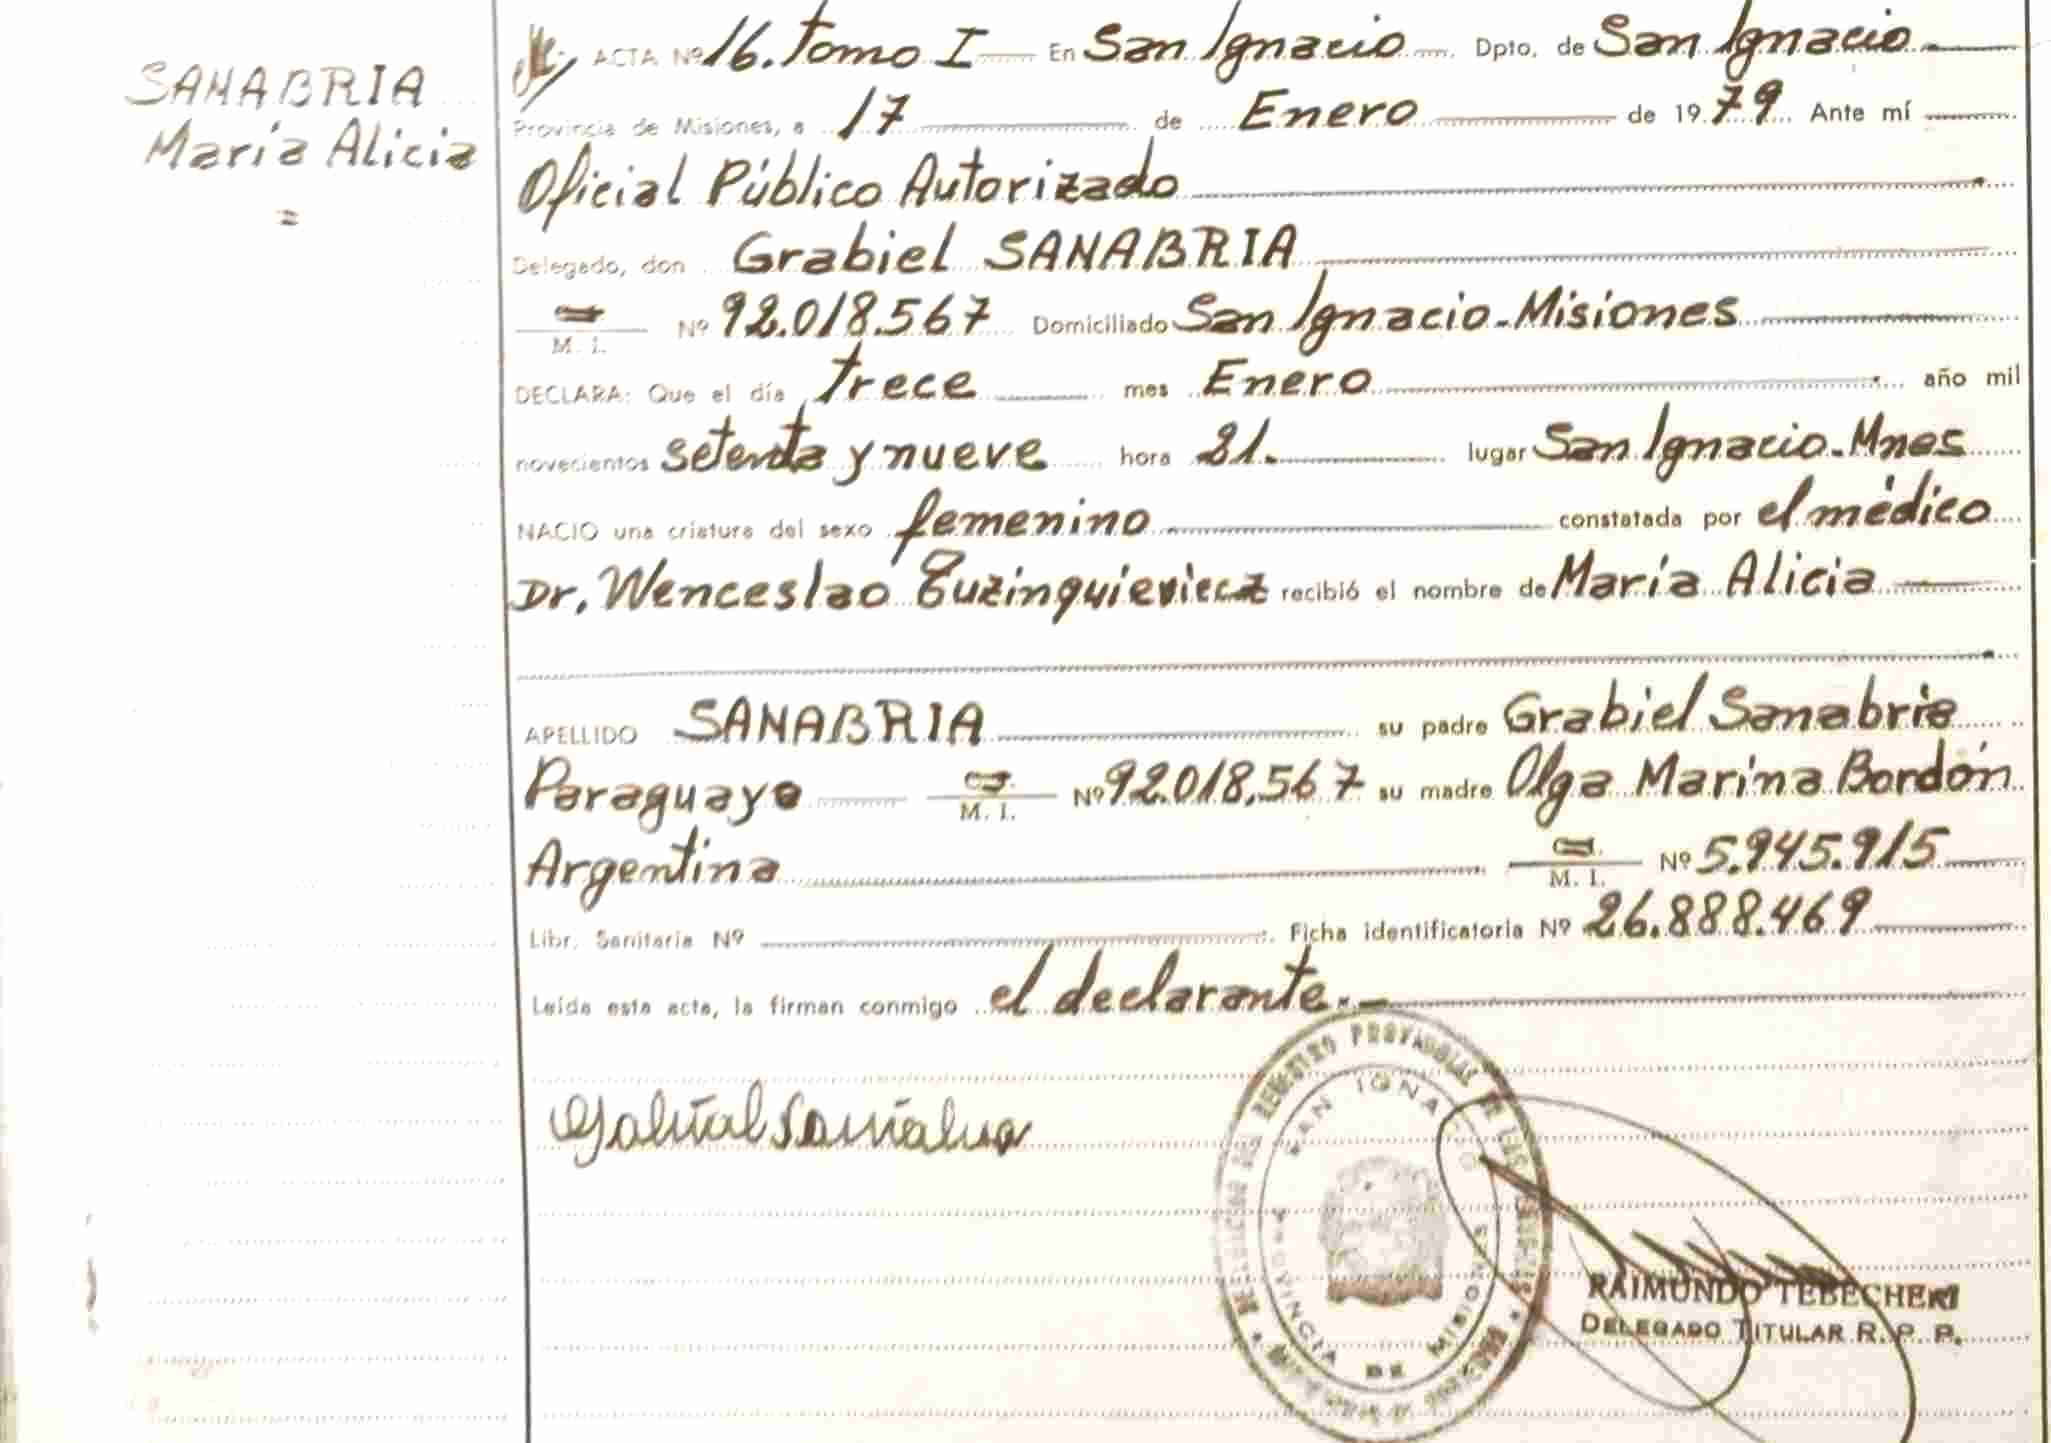 SANABRIA
María Alicia
=
ACTA Nº 16. Tomo I En San Ignacio Dpto. de San Ignacio
Provincia de Misiones, a 17 de Enero de 1979 Ante mí
Oficial Público Autorizado
Delegado, don Grabiel SANABRIA
M. I. Nº 92.018.567 Domiciliado San Ignacio-Misiones
DECLARA: Que el día trece mes Enero año mil
novecientos setenta y nueve hora 21. lugar San Ignacio-Mnes
NACIO una criatura del sexo femenino constatada por el médico
Dr. Wenceslao recibió el nombre de María Alicia
APELLIDO SANABRIA su padre Grabiel Sanabria
Paraguayo M. I. Nº 92.018.567 su madre Olga Marina Bordón
Argentina M. I. Nº 5.945.915
Libr. Sanitaria Nº Ficha identificatoria Nº 26.888.469
Leída esta acta, la firman conmigo el declarante.-
SAN IGNACIO
PROVINCIA DE MISIONES
REGISTRO PROVINCIAL DE LAS PERSONAS
RAIMUNDO TEBECHERI
DELEGADO TITULAR R. P. P.